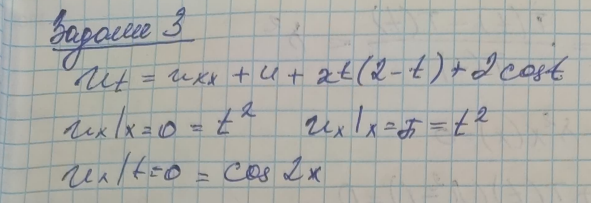 Задание 3
uₜ = uₓₓ + u + xt(2-t) + 2cost
uₓ|x=0 = t² uₓ|x=π = t²
uₓ|t=0 = cos2x